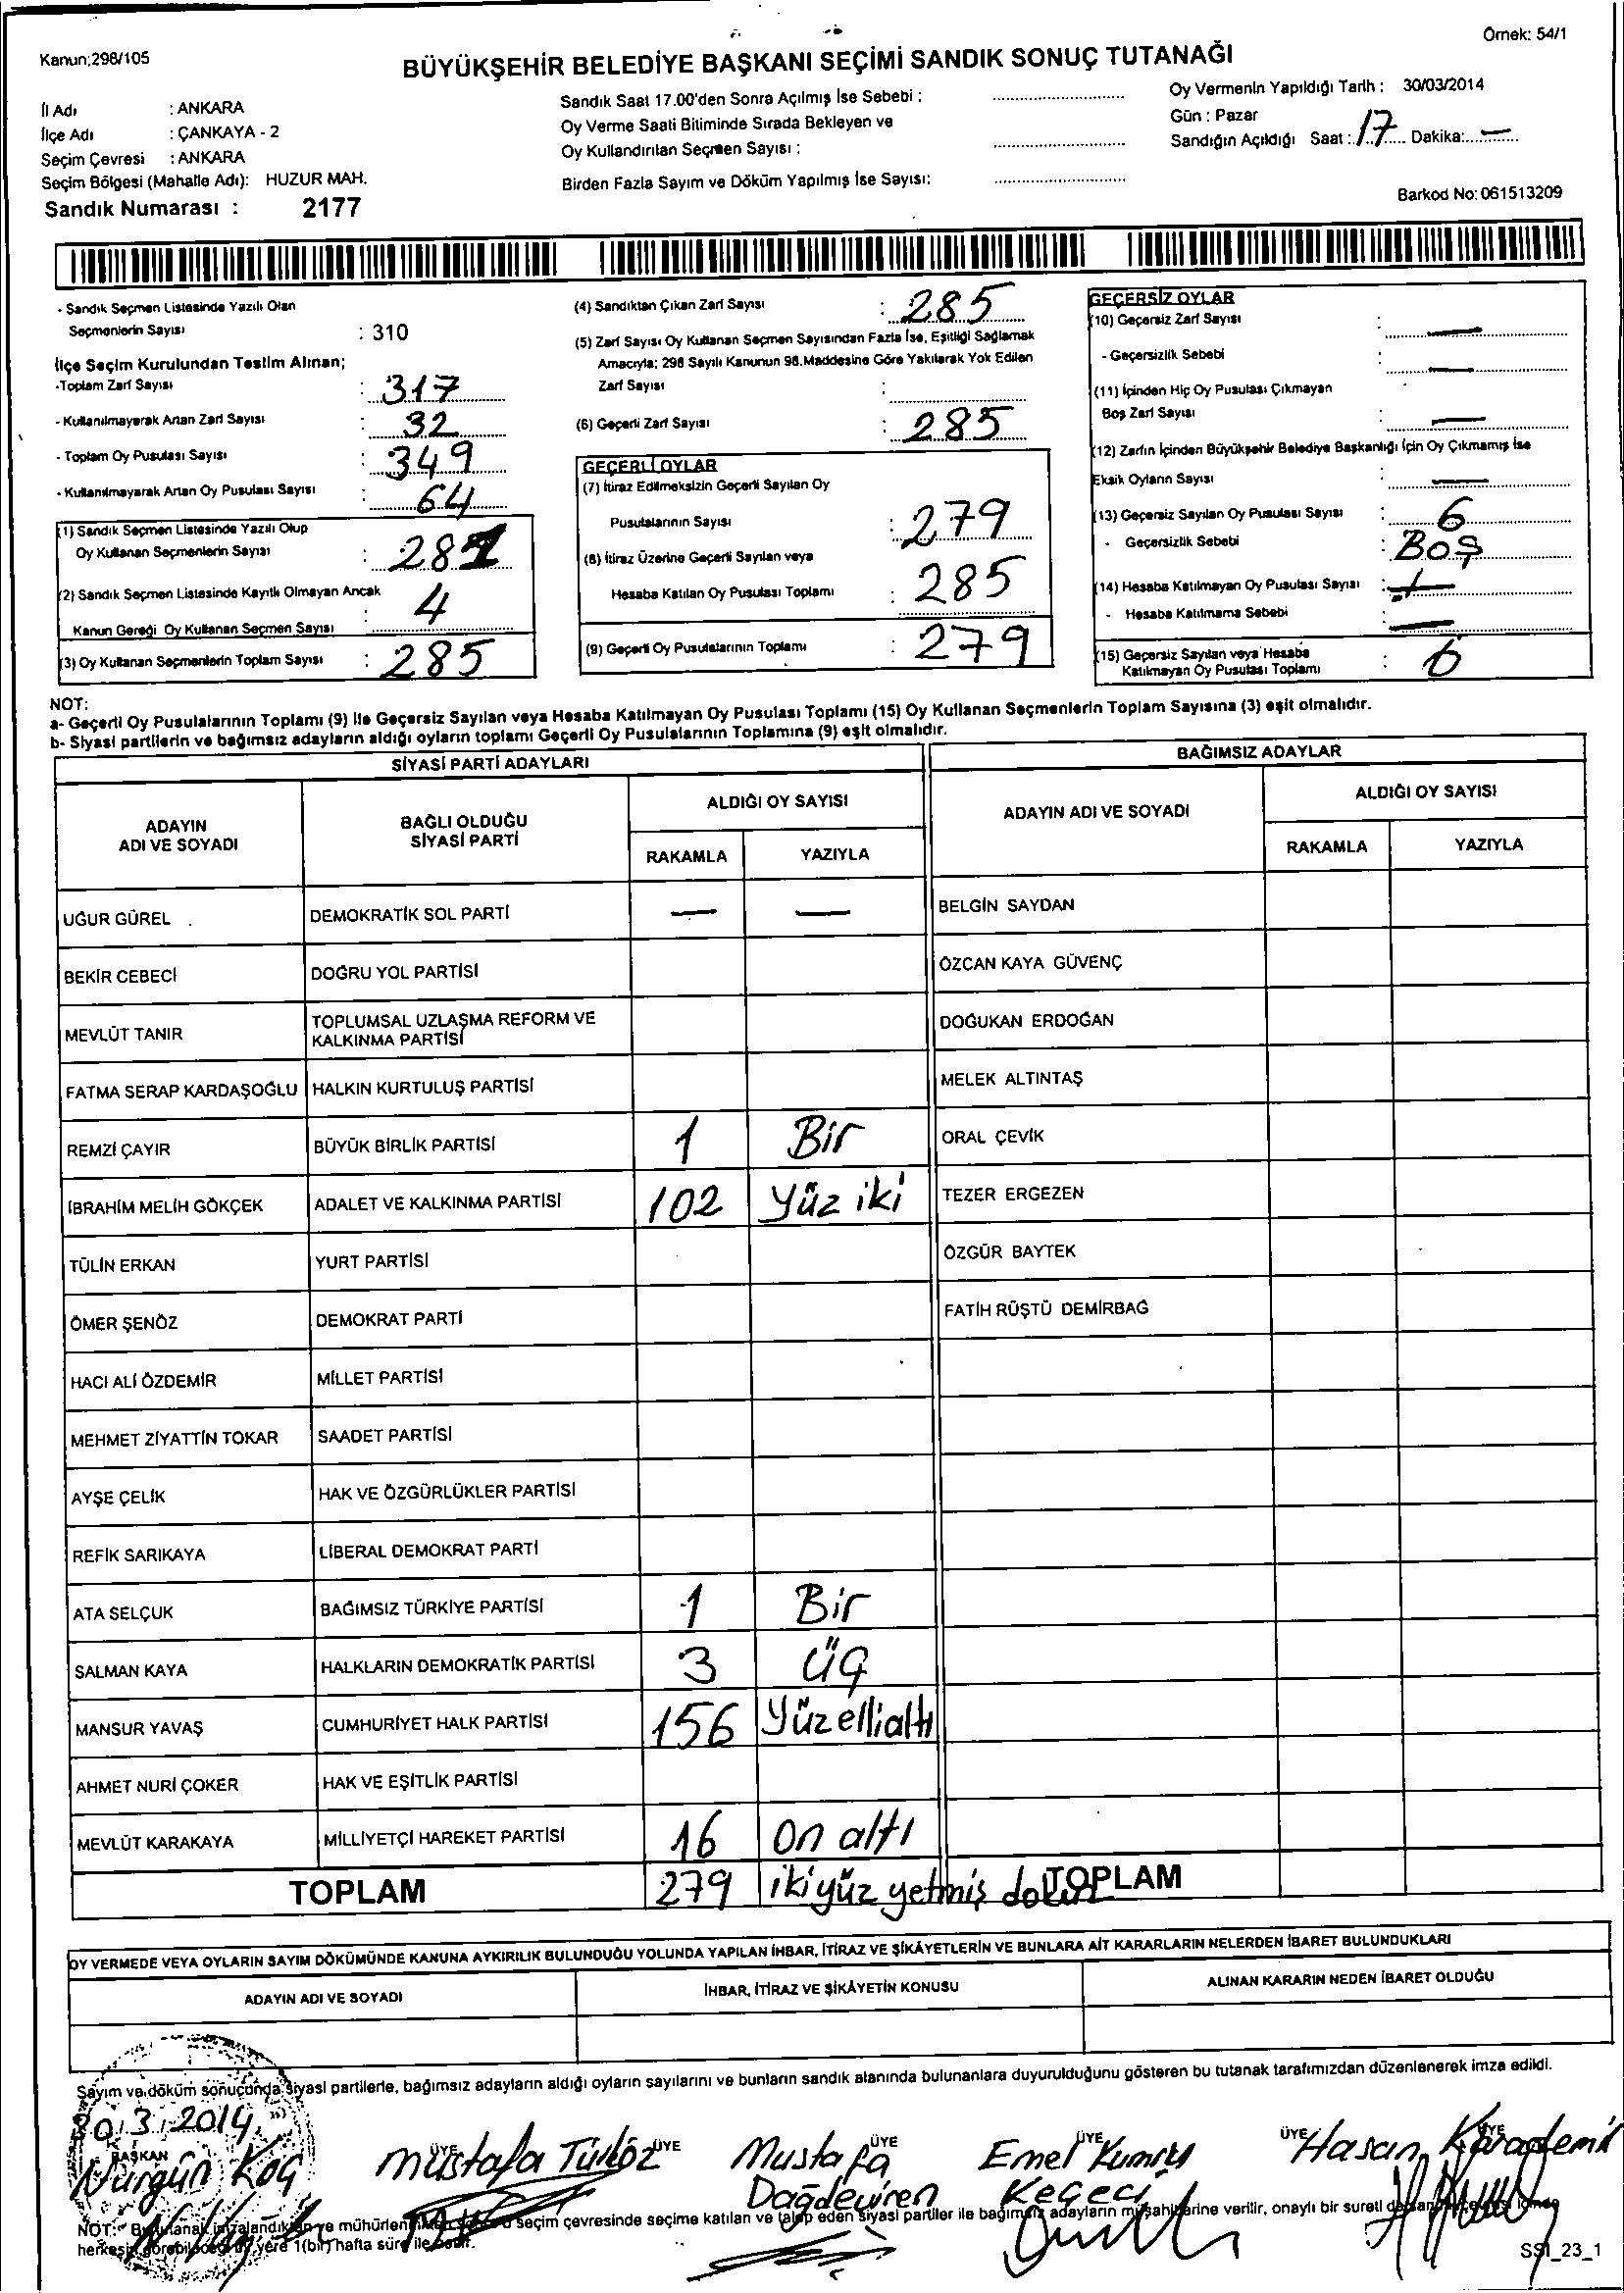 Örnek: 54/1
Kanun;298/105
BÜYÜKŞEHİR BELEDİYE BAŞKANI SEÇİMİ SANDIK SONUÇ TUTANAĞI
İl Adı : ANKARA
İlçe Adı : ÇANKAYA - 2
Seçim Çevresi : ANKARA
Seçim Bölgesi (Mahalle Adı): HUZUR MAH.
Sandık Numarası : 2177
Sandık Saat 17.00'den Sonra Açılmış İse Sebebi :
Oy Verme Saati Bitiminde Sırada Bekleyen ve
Oy Kullandırılan Seçmen Sayısı :
Birden Fazla Sayım ve Döküm Yapılmış İse Sayısı:
Oy Vermenin Yapıldığı Tarih : 30/03/2014
Gün : Pazar
Sandığın Açıldığı Saat : 17 Dakika: —
Barkod No: 061513209
- Sandık Seçmen Listesinde Yazılı Olan
Seçmenlerin Sayısı : 310
İlçe Seçim Kurulundan Teslim Alınan;
-Toplam Zarf Sayısı : 317
- Kullanılmayarak Artan Zarf Sayısı : 32
- Toplam Oy Pusulası Sayısı : 349
- Kullanılmayarak Artan Oy Pusulası Sayısı : 64
(1) Sandık Seçmen Listesinde Yazılı Olup
Oy Kullanan Seçmenlerin Sayısı : 281
(2) Sandık Seçmen Listesinde Kayıtlı Olmayan Ancak
Kanun Gereği Oy Kullanan Seçmen Sayısı : 4
(3) Oy Kullanan Seçmenlerin Toplam Sayısı : 285
(4) Sandıktan Çıkan Zarf Sayısı : 285
(5) Zarf Sayısı Oy Kullanan Seçmen Sayısından Fazla İse, Eşitliği Sağlamak
Amacıyla; 298 Sayılı Kanunun 98.Maddesine Göre Yakılarak Yok Edilen
Zarf Sayısı :
(6) Geçerli Zarf Sayısı : 285
GEÇERLİ OYLAR
(7) İtiraz Edilmeksizin Geçerli Sayılan Oy
Pusulalarının Sayısı : 279
(8) İtiraz Üzerine Geçerli Sayılan veya
Hesaba Katılan Oy Pusulası Toplamı : 285
(9) Geçerli Oy Pusulalarının Toplamı : 279
GEÇERSİZ OYLAR
(10) Geçersiz Zarf Sayısı : —
- Geçersizlik Sebebi : —
(11) İçinden Hiç Oy Pusulası Çıkmayan
Boş Zarf Sayısı : —
(12) Zarfın İçinden Büyükşehir Belediye Başkanlığı İçin Oy Çıkmamış İse
Eksik Oyların Sayısı : —
(13) Geçersiz Sayılan Oy Pusulası Sayısı : 6
- Geçersizlik Sebebi : Boş
(14) Hesaba Katılmayan Oy Pusulası Sayısı : —
- Hesaba Katılmama Sebebi : —
(15) Geçersiz Sayılan veya Hesaba
Katılmayan Oy Pusulası Toplamı : 6
NOT:
a- Geçerli Oy Pusulalarının Toplamı (9) ile Geçersiz Sayılan veya Hesaba Katılmayan Oy Pusulası Toplamı (15) Oy Kullanan Seçmenlerin Toplam Sayısına (3) eşit olmalıdır.
b- Siyasi partilerin ve bağımsız adayların aldığı oyların toplamı Geçerli Oy Pusulalarının Toplamına (9) eşit olmalıdır.
SİYASİ PARTİ ADAYLARI
ADAYIN ADI VE SOYADI
BAĞLI OLDUĞU SİYASİ PARTİ
ALDIĞI OY SAYISI
RAKAMLA YAZIYLA
UĞUR GÜREL DEMOKRATİK SOL PARTİ — —
BEKİR CEBECİ DOĞRU YOL PARTİSİ
MEVLÜT TANIR TOPLUMSAL UZLAŞMA REFORM VE
KALKINMA PARTİSİ
FATMA SERAP KARDAŞOĞLU HALKIN KURTULUŞ PARTİSİ
REMZİ ÇAYIR BÜYÜK BİRLİK PARTİSİ 1 Bir
İBRAHİM MELİH GÖKÇEK ADALET VE KALKINMA PARTİSİ 102 Yüz iki
TÜLİN ERKAN YURT PARTİSİ
ÖMER ŞENÖZ DEMOKRAT PARTİ
HACI ALİ ÖZDEMİR MİLLET PARTİSİ
MEHMET ZİYATTİN TOKAR SAADET PARTİSİ
AYŞE ÇELİK HAK VE ÖZGÜRLÜKLER PARTİSİ
REFİK SARIKAYA LİBERAL DEMOKRAT PARTİ
ATA SELÇUK BAĞIMSIZ TÜRKİYE PARTİSİ 1 Bir
SALMAN KAYA HALKLARIN DEMOKRATİK PARTİSİ 3 üç
MANSUR YAVAŞ CUMHURİYET HALK PARTİSİ 156 Yüzellialtı
AHMET NURİ ÇOKER HAK VE EŞİTLİK PARTİSİ
MEVLÜT KARAKAYA MİLLİYETÇİ HAREKET PARTİSİ 16 On altı
TOPLAM 279 ikiyüz yetmiş dokuz
BAĞIMSIZ ADAYLAR
ADAYIN ADI VE SOYADI
ALDIĞI OY SAYISI
RAKAMLA YAZIYLA
BELGİN SAYDAN
ÖZCAN KAYA GÜVENÇ
DOĞUKAN ERDOĞAN
MELEK ALTINTAŞ
ORAL ÇEVİK
TEZER ERGEZEN
ÖZGÜR BAYTEK
FATİH RÜŞTÜ DEMİRBAĞ
TOPLAM
OY VERMEDE VEYA OYLARIN SAYIM DÖKÜMÜNDE KANUNA AYKIRILIK BULUNDUĞU YOLUNDA YAPILAN İHBAR, İTİRAZ VE ŞİKÂYETLERİN VE BUNLARA AİT KARARLARIN NELERDEN İBARET BULUNDUKLARI
ADAYIN ADI VE SOYADI
İHBAR, İTİRAZ VE ŞİKÂYETİN KONUSU
ALINAN KARARIN NEDEN İBARET OLDUĞU
Sayım ve döküm sonucunda siyasi partilerle, bağımsız adayların aldığı oyların sayılarını ve bunların sandık alanında bulunanlara duyurulduğunu gösteren bu tutanak tarafımızdan düzenlenerek imza edildi.
30.3.2014
BAŞKAN ÜYE ÜYE ÜYE ÜYE ÜYE ÜYE
Nurgün Koç
Mustafa
Mustafa Dağdeviren
Emel Kumru Keçeci
Hasan Karademir
NOT: Bu tutanak imzalandıktan ve mühürlendikten seçim çevresinde seçime katılan ve talep eden siyasi partiler ile bağımsız adayların müşahitlerine verilir, onaylı bir sureti
herkesin görebileceği bir yere 1(bir) hafta süre ile asılır.
SSI_23_1